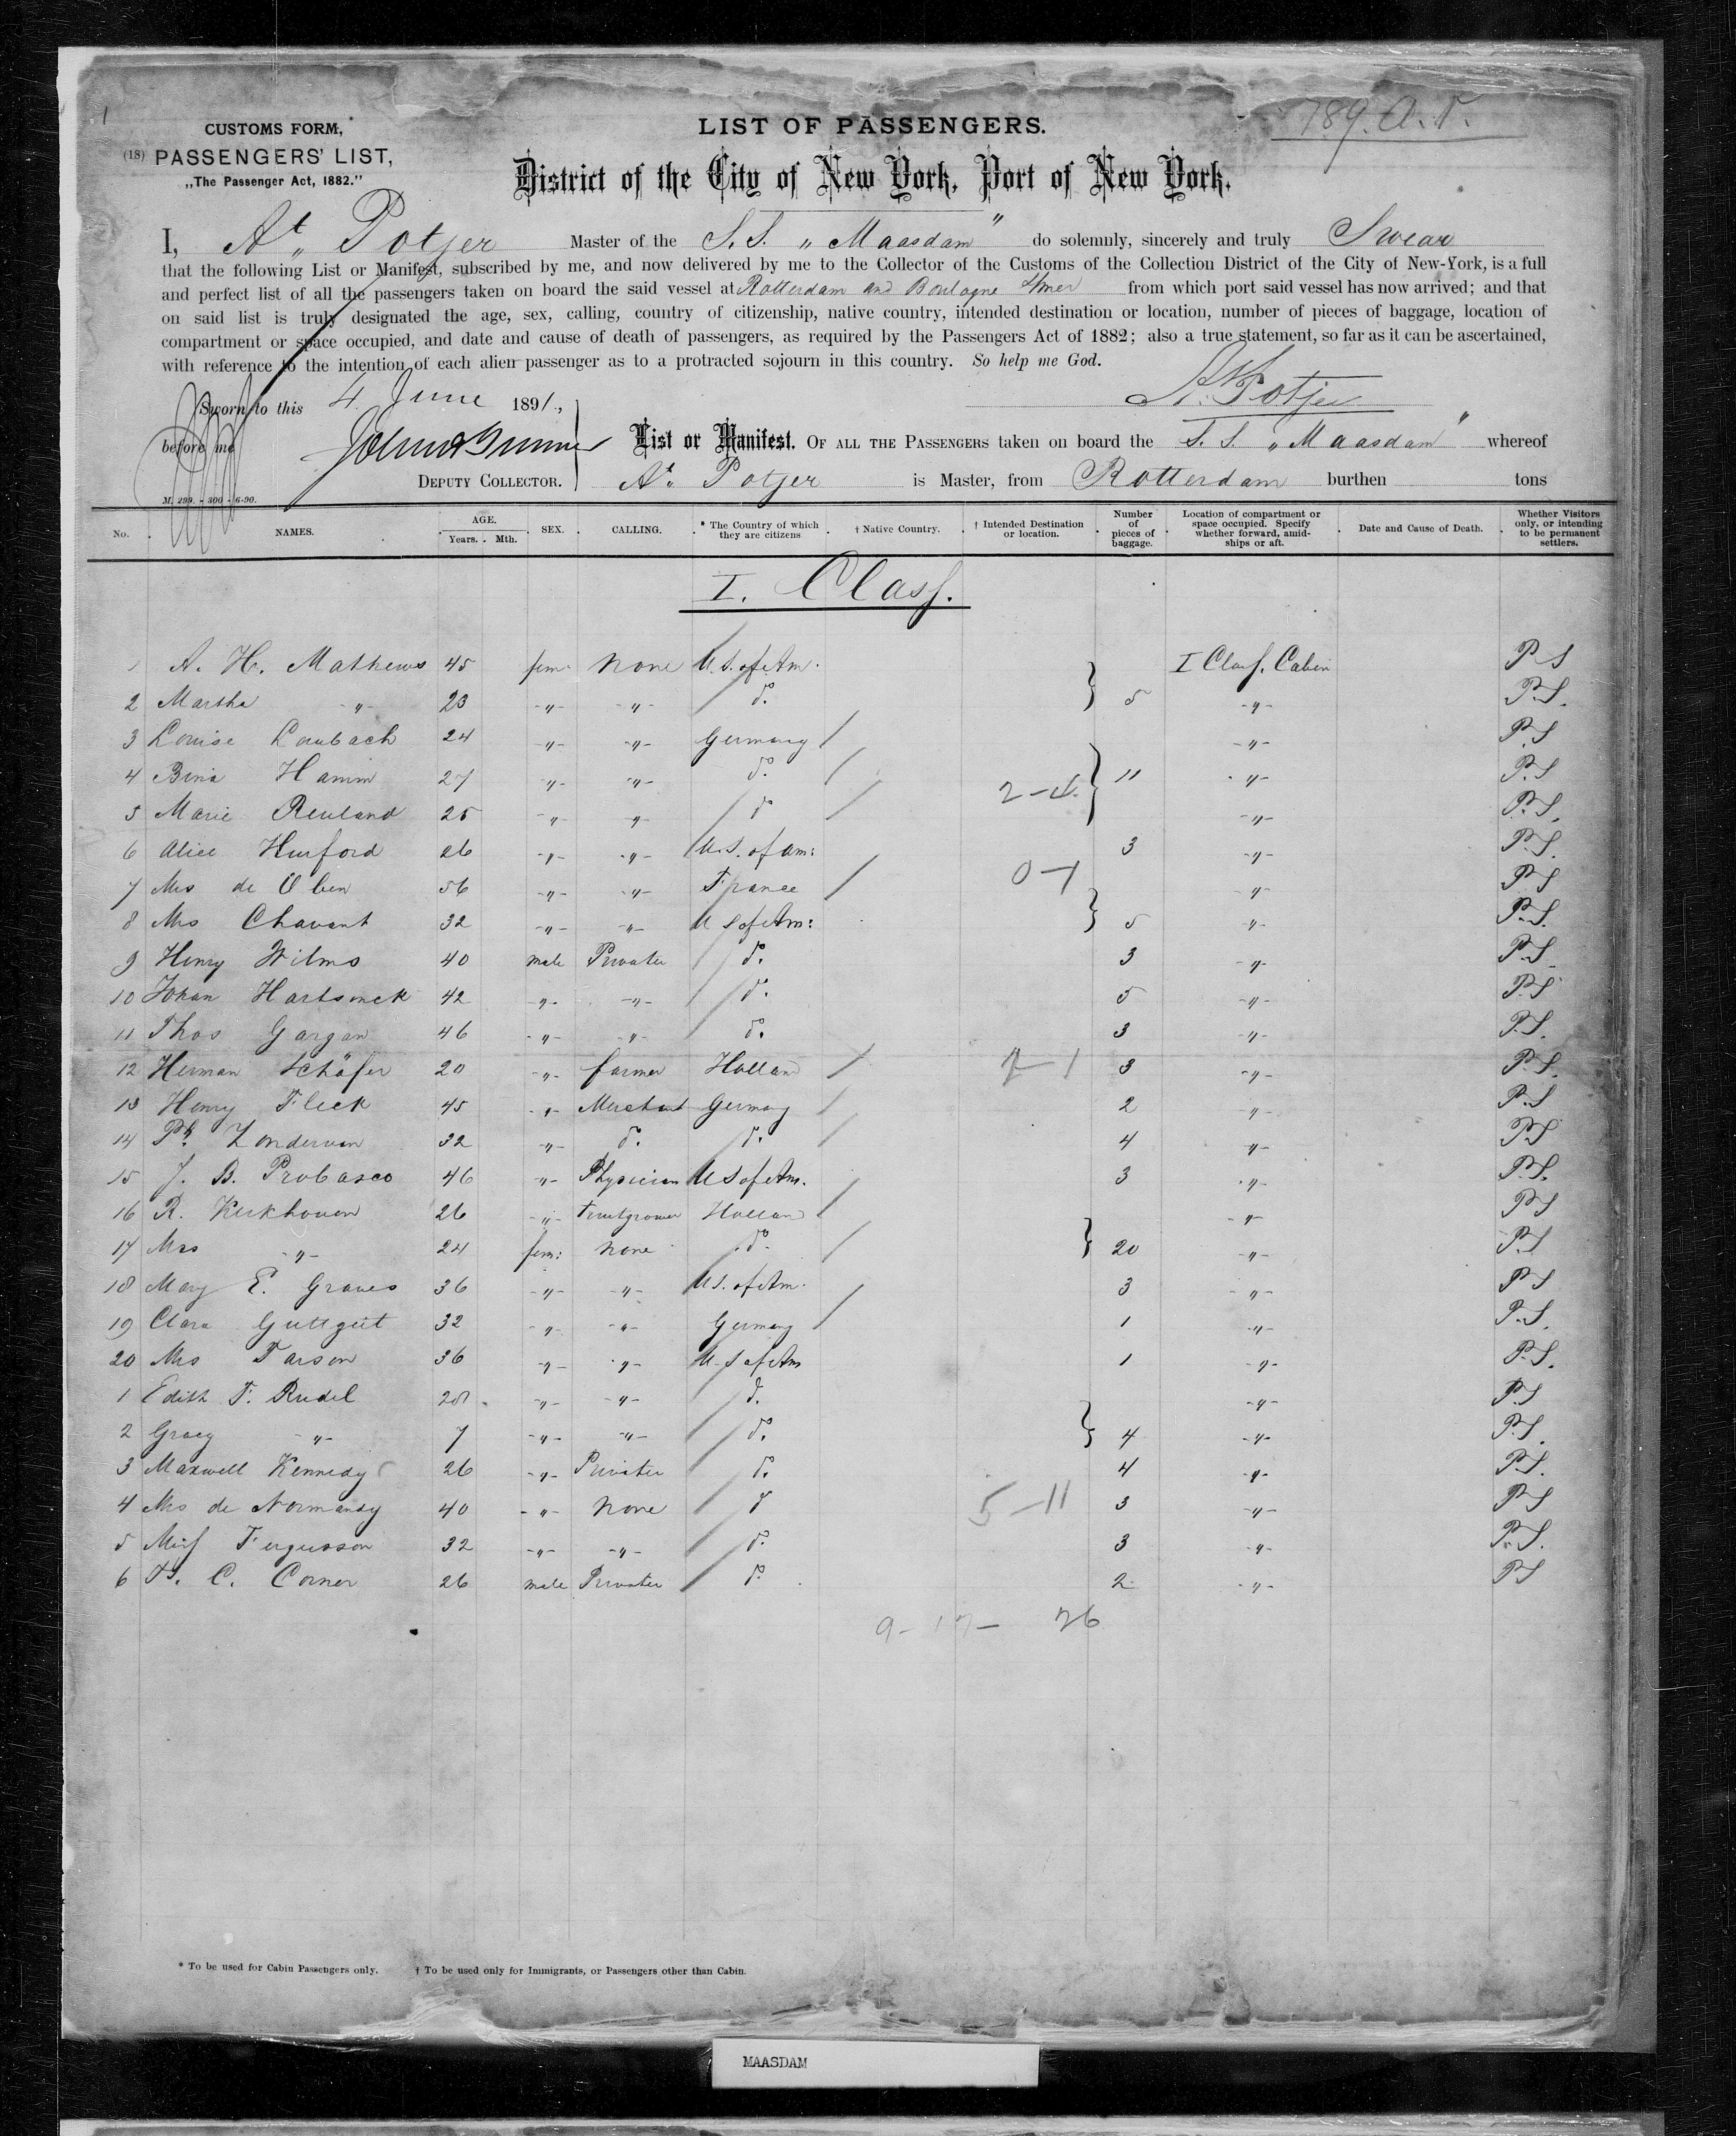 1
789. A. T.
CUSTOMS FORM,
(18) PASSENGERS' LIST,
„The Passenger Act, 1882."
LIST OF PASSENGERS.
District of the City of New York, Port of New York.
I, At. Potjer Master of the S.S. „Maasdam" do solemnly, sincerely and truly Swear
that the following List or Manifest, subscribed by me, and now delivered by me to the Collector of the Customs of the Collection District of the City of New-York, is a full
and perfect list of all the passengers taken on board the said vessel at Rotterdam and Boulogne s/mer from which port said vessel has now arrived; and that
on said list is truly designated the age, sex, calling, country of citizenship, native country, intended destination or location, number of pieces of baggage, location of
compartment or space occupied, and date and cause of death of passengers, as required by the Passengers Act of 1882; also a true statement, so far as it can be ascertained,
with reference to the intention of each alien passenger as to a protracted sojourn in this country. So help me God.
Sworn to this 4 June 1891,
At. Potjer
before me
List or Manifest. OF ALL THE PASSENGERS taken on board the S.S. „Maasdam" whereof
DEPUTY COLLECTOR. At. Potjer is Master, from Rotterdam burthen tons
M. 299. - 300 - 6-90.
No. NAMES. AGE. Years. Mth. SEX. CALLING. * The Country of which they are citizens † Native Country. † Intended Destination or location. Number of pieces of baggage. Location of compartment or space occupied. Specify whether forward, amidships or aft. Date and Cause of Death. Whether Visitors only, or intending to be permanent settlers.
I. Class.
1 A. H. Mathews 45 fem. none U.S. of Am. I Class. Cabin P S
2 Martha -"- 23 -"- -"- do. 5 -"- P.S.
3 Louise Laubach 24 -"- -"- Germany -"- P.S
4 Bina Hamm 27 -"- -"- do. 11 -"- P.S
5 Marie Reuland 25 -"- -"- do 2-4. -"- P.S.
6 Alice Hurford 26 -"- -"- U.S. of Am: 3 -"- P.S.
7 Mrs de Olben 56 -"- -"- France 0-1 -"- P.S
8 Mrs Chavant 32 -"- -"- U S of Am: 5 -"- P.S.
9 Henry Wilms 40 male Privater do. 3 -"- P.S.
10 Johan Hartsinck 42 -"- -"- do. 5 -"- P.S
11 Thos Gargan 46 -"- -"- do. 3 -"- P.S.
12 Herman Schäfer 20 -"- farmer Holland 1 3 -"- P.S.
13 Henry Fleck 45 -"- Merchant Germany 2 -"- P.S
14 Ph. Zondervan 32 -"- do. do. 4 -"- P.S
15 J. B. Probasco 46 -"- Physician U S of Am. 3 -"- P.S.
16 R. Kerkhoven 26 -"- fruitgrower Holland -"- P S
17 Mrs -"- 24 fem: none do. 20 -"- P.S
18 Mary E. Graves 36 -"- -"- U S. of Am. 3 -"- P S
19 Clara Guttgut 32 -"- -"- Germany 1 -"- P.S.
20 Mrs Farson 36 -"- -"- U. S of Am 1 -"- P.S.
1 Edith F. Rudel 28 -"- -"- do. -"- P.S
2 Gracy -"- 7 -"- -"- do. 4 -"- P.S.
3 Maxwell Kennedy 26 -"- Privater do. 4 -"- P.S.
4 Mrs de Normandy 40 -"- none do 5-11 3 -"- P S
5 Miss Fergusson 32 -"- -"- do. 3 -"- P.S.
6 C. Corner 26 male Privater do. 2 -"- P S
9-17- 26
* To be used for Cabin Passengers only. † To be used only for Immigrants, or Passengers other than Cabin.
MAASDAM